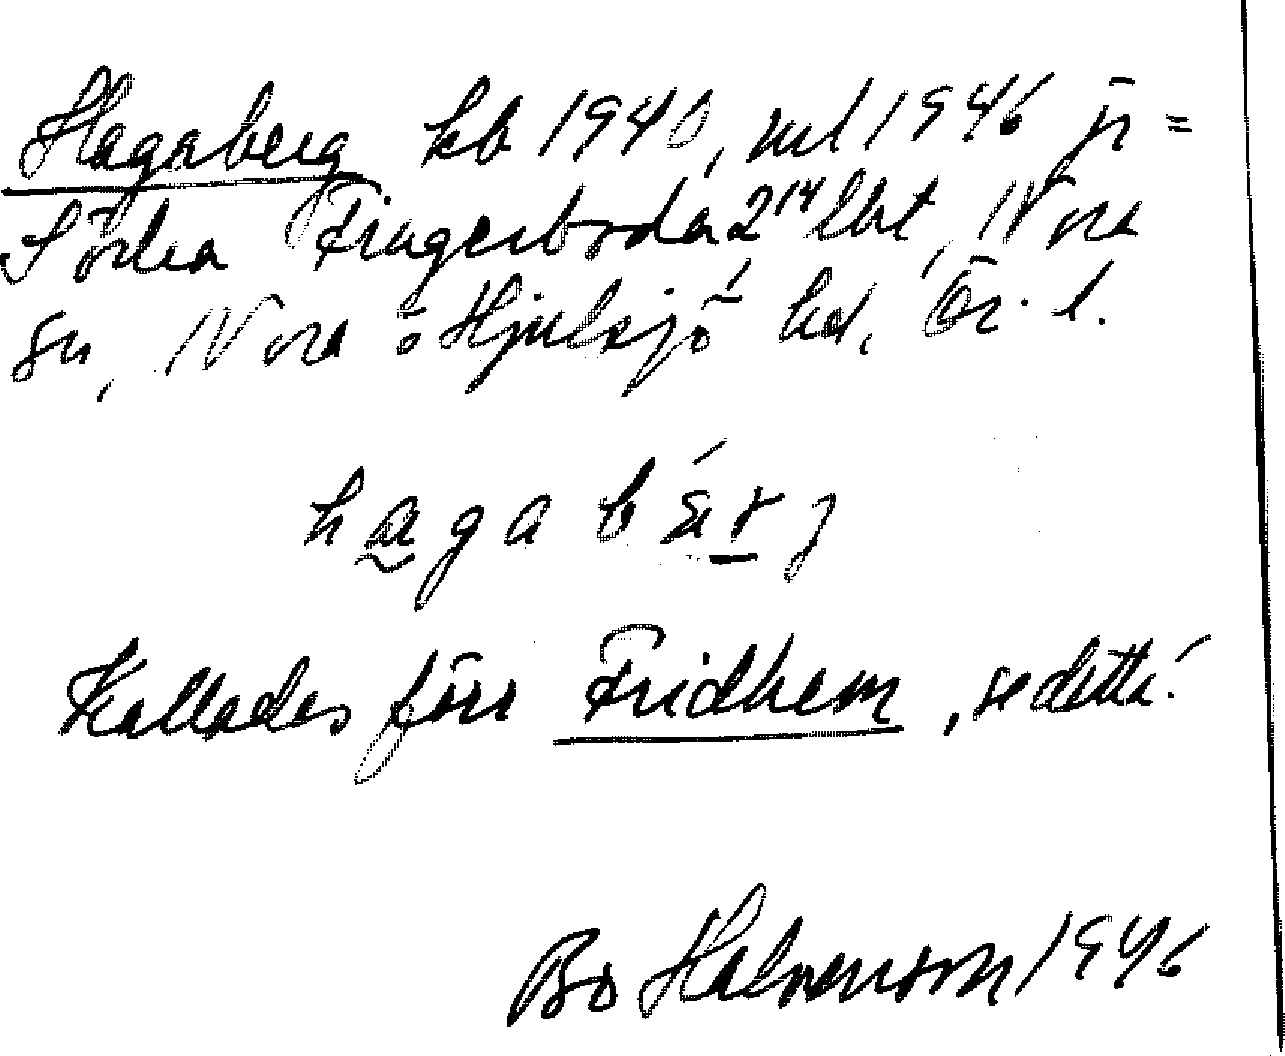 Hagaberg kb 1940, ml 1946 js =
Södra Fingerboda 2¹⁴ lht, Nora
sn, Nora o Hjulsjö hd, Ör. l.
h a g a b ä́ r g
Kallades förr Fridhem, se detta!
Bo Halvarson 1946